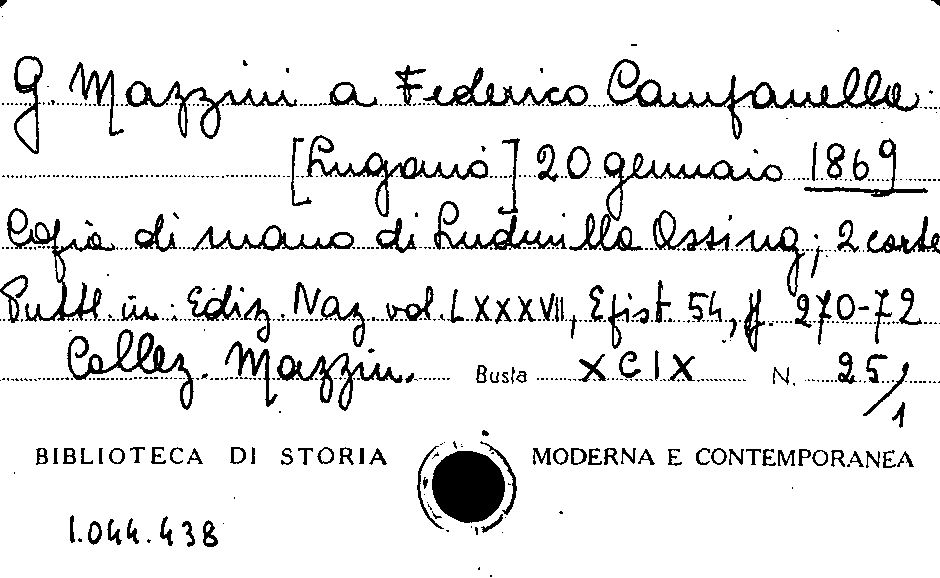 G. Mazzini a Federico Campanella.
[Lugano] 20 gennaio 1869
Copia di mano di Ludmilla Assing; 2 carte
Pubbl. in: Ediz. Naz. vol. LXXXVII, Epist. 54, pp. 270-72
Collez. Mazzin. Busta XCIX N. 25/1
BIBLIOTECA DI STORIA MODERNA E CONTEMPORANEA
1.044.438